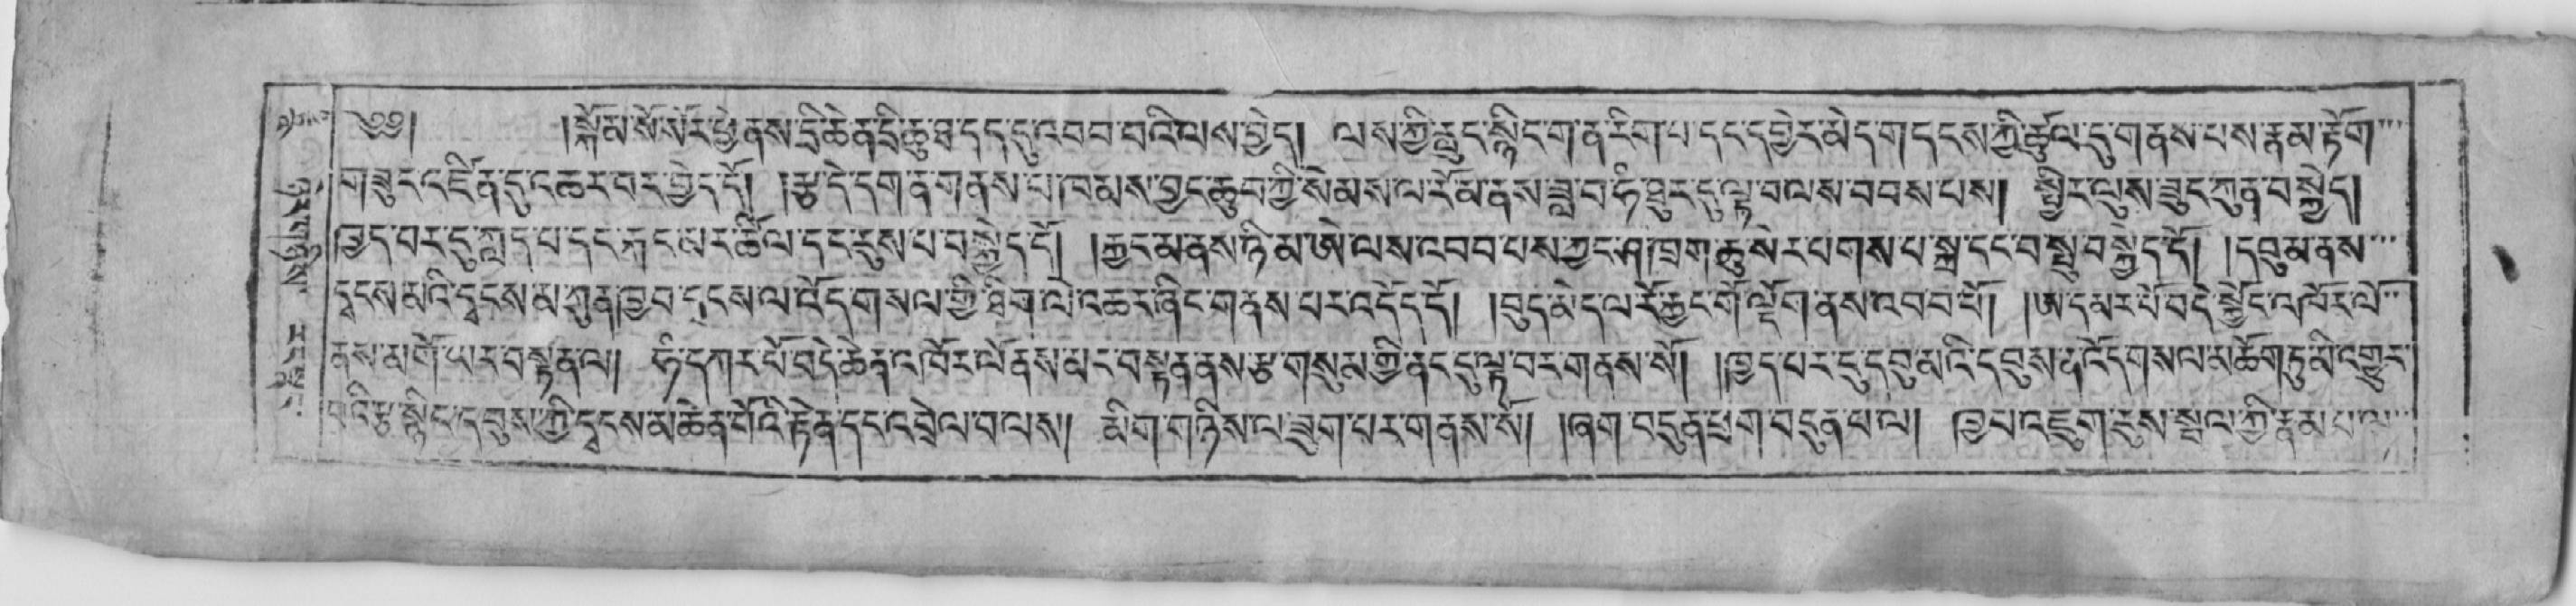 ༄༅། །སྐོམ་སོ་སོར་ཕྱེ་ནས་དྲི་ཆེན་དྲི་ཆུ་ཐ་དད་དུ་འབབ་བའི་ལས་བྱེད། ལས་ཀྱི་རླུང་སྙིང་ག་ན་རིག་པ་དང་དབྱེར་མེད་གདངས་ཀྱི་ཚུལ་དུ་གནས་པས་རྣམ་རྟོག
གཟུང་འཛིན་དུ་འཆར་བར་བྱེད་དོ། །རྩ་དེ་དག་ན་གནས་པ་ཁམས་བྱང་ཆུབ་ཀྱི་སེམས་ལ་རོ་མ་ནས་ཟླ་བ་ཧཾ་ཐུར་དུ་ལྟ་བ་ལས་བབས་པས། སྤྱིར་ལུས་ཟུང་ཀུན་བསྐྱེད།
ཁྱད་པར་དུ་ཀླད་པ་དང་རྐང་མར་ཚིལ་དང་རུས་པ་བསྐྱེད་དོ། །རྐྱང་མ་ནས་ཉི་མ་ཨེ་ལས་འབབ་པས་ཀྱང་ཤ་ཁྲག་ཆུ་སེར་པགས་པ་སྐྲ་དང་བ་སྤུ་བསྐྱེད་དོ། །དབུ་མ་ནས
དྭངས་མའི་དྭངས་མ་ཀུན་ཁྱབ་དྭངས་ལ་འོད་གསལ་གྱི་ཐིག་ལེ་འཆར་ཞིང་གནས་པར་འདོད་དོ། །བུད་མེད་ལ་རོ་རྐྱང་གོ་ལྡོག་ནས་འབབ་པོ། །ཨ་དམར་པོ་བདེ་སྐྱོང་འཁོར་ལོ
ནས་མགོ་ཡར་བསྟན་ལ། ཧཾ་དཀར་པོ་བདེ་ཆེན་འཁོར་ལོ་ནས་མར་བསྟན་ནས་རྩ་གསུམ་གྱི་ནང་དུ་ལྟ་བར་གནས་སོ། །ཁྱད་པར་དུ་དབུ་མའི་དབུས་ན་འོད་གསལ་མཆོག་ཏུ་མི་འགྱུར
བའི་རྩ་སྙིང་དབུས་ཀྱི་དྭངས་མ་ཆེན་པོའི་རྟེན་དང་འབྲེལ་བ་ལས། མིག་གཉིས་ལ་ཟུག་པར་གནས་སོ། །ཞག་བདུན་ཕྲག་བདུན་པ་ལ། ཁྱབ་འཇུག་རུས་སྦལ་ཀྱི་རྣམ་པ་ལ